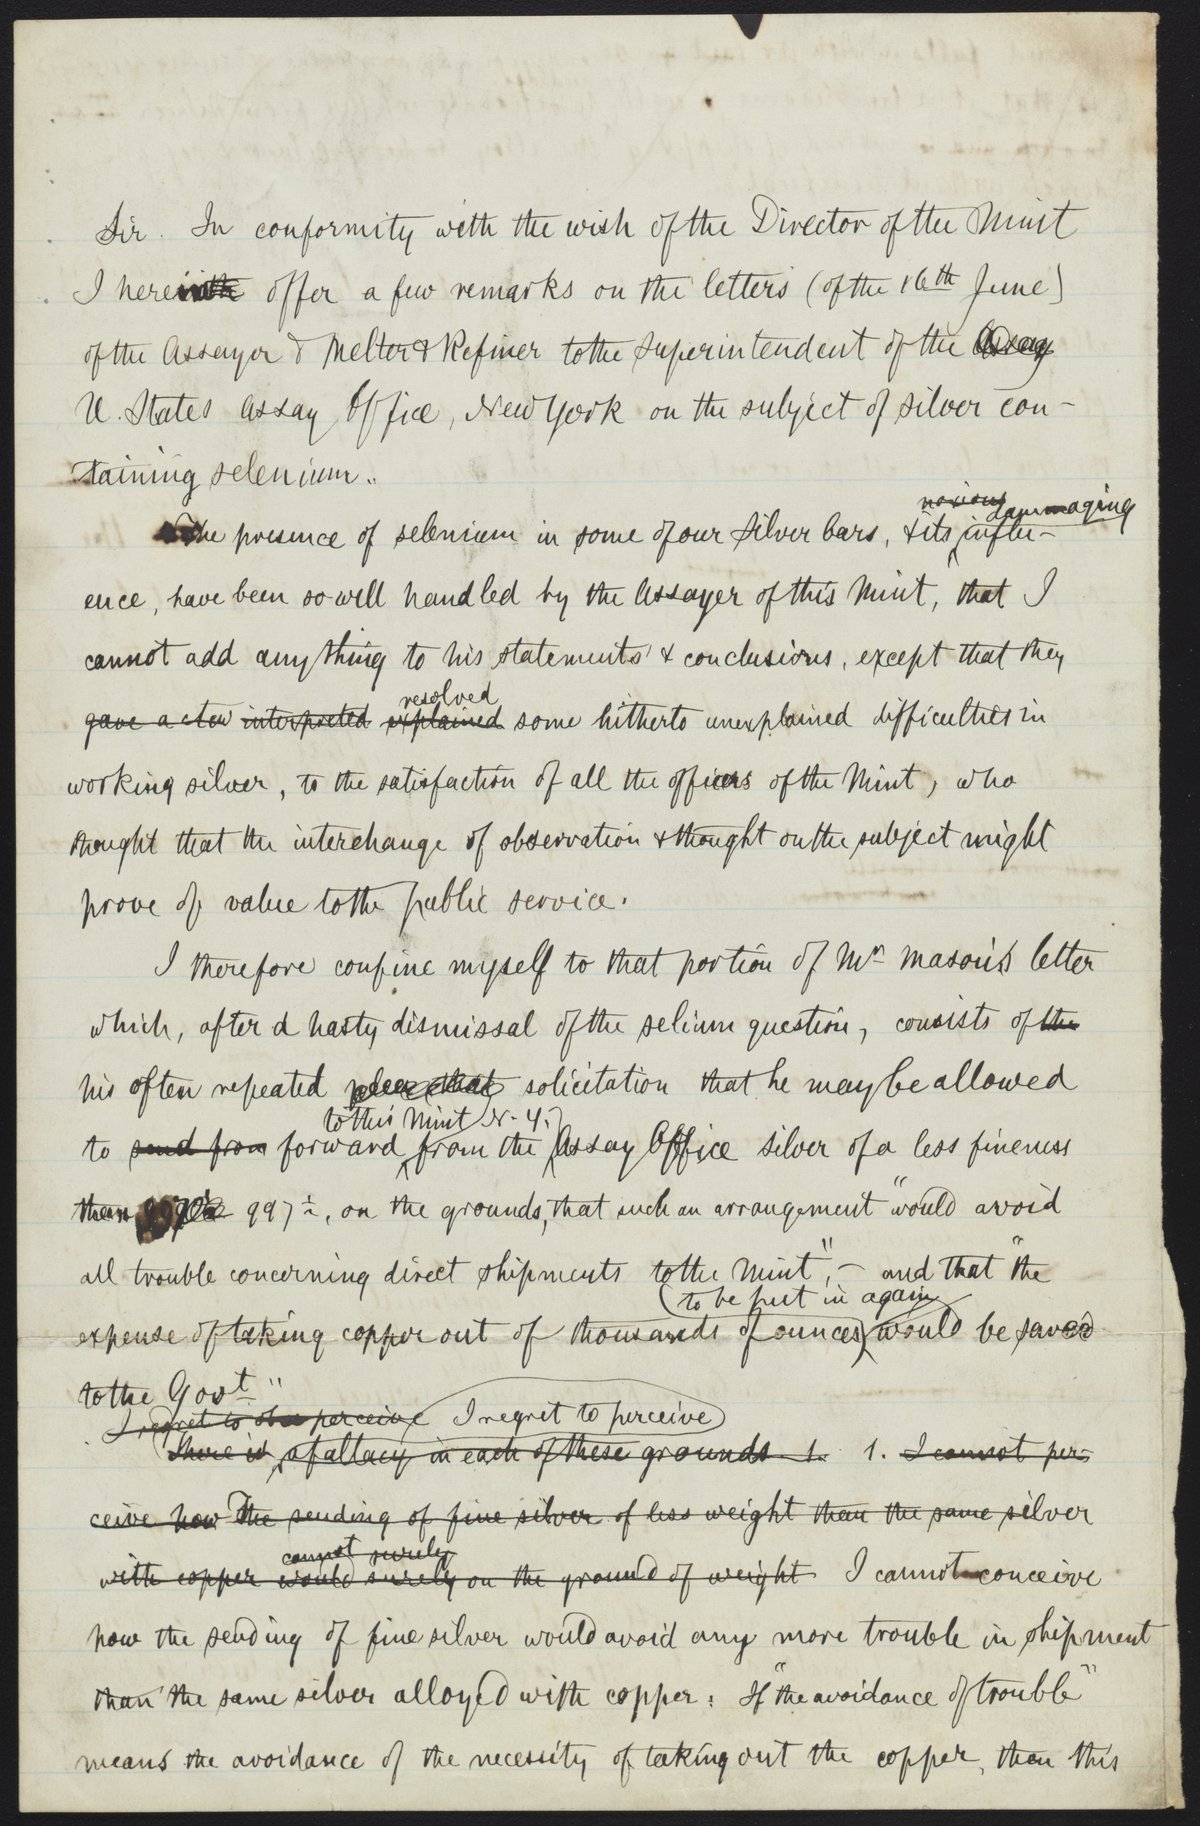 Sir. In conformity with the wish of the Director of the Mint
I herewith offer a few remarks on the letters (of the 16th June)
of the Assayer & Melter & Refiner to the Superintendent of the Assay
U. States Assay Office, New York on the subject of silver con-
taining selenium.
noxious dammaging
The presence of selenium in some of our Silver bars, & its influ-
ence, have been so well handled by the Assayer of this Mint, that I
cannot add any thing to his statements & conclusions, except that they
resolved
gave a clew interpreted explained some hitherto unexplained difficulties in
working silver, to the satisfaction of all the officers of the Mint, who
thought that the interchange of observation & thought on the subject might
prove of value to the public service.
I therefore confine myself to that portion of Mr Mason's letter
which, after a hasty dismissal of the selium question, consists of the
his often repeated that solicitation that he may be allowed
to this Mint N. Y.
to send from forward from the Assay Office silver of a less fineness
than 997½, on the grounds, that such an arrangement "would avoid
all trouble concerning direct shipments to the Mint", – and that "the
(to be put in again
expense of taking copper out of thousands of ounces) would be saved
to the Govt"
I regret to perceive I regret to perceive
There is a fallacy in each of these grounds. 1. 1. I cannot per-
ceive how The sending of fine silver of less weight than the same silver
cannot surely
with copper would surely on the ground of weight I cannot conceive
how the sending of fine silver would avoid any more trouble in shipment
than the same silver alloyed with copper: If "the avoidance of trouble"
means the avoidance of the necessity of taking out the copper, then this